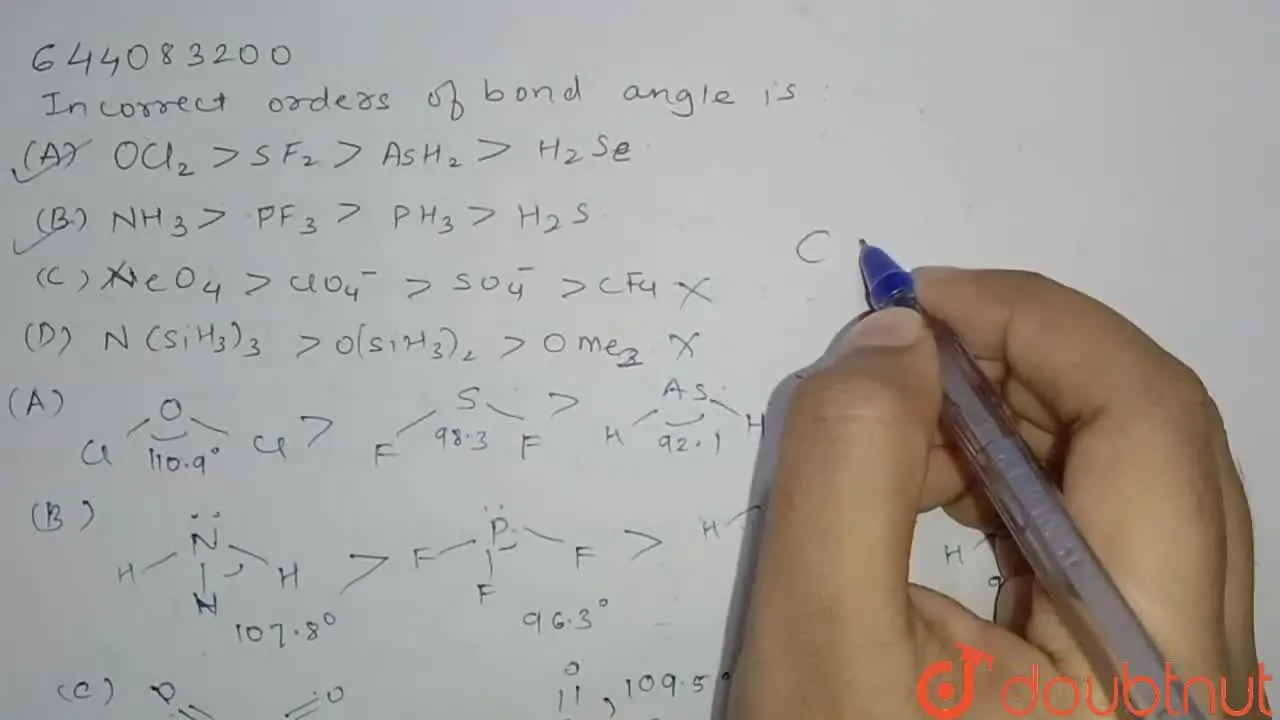 644083200
Incorrect orders of bond angle is :
(A) OCl2 > SF2 > AsH2 > H2Se
(B) NH3 > PF3 > PH3 > H2S
(C) XeO4 > ClO4⁻ > SO4⁻ > CF4 X
(D) N(SiH3)3 > O(SiH3)2 > Ome2 X
(A) Cl O Cl 110.9° > F S F 98.3 > H As H 92.1
(B) H N H 107.8° > F P F F 96.3° > H H
(C) O O O , 109.5°
C
doubtnut